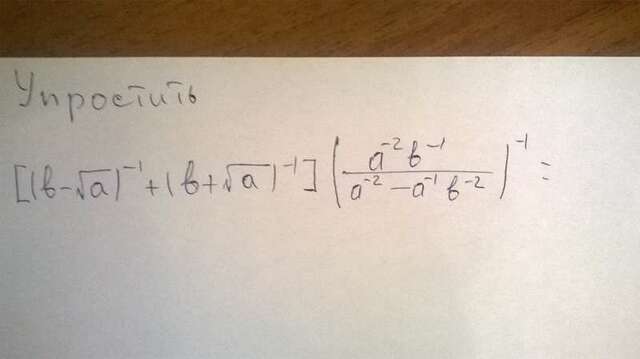 Упростить
[(в-√a)⁻¹+(в+√a)⁻¹](a⁻²в⁻¹/(a⁻²-a⁻¹в⁻²))⁻¹=